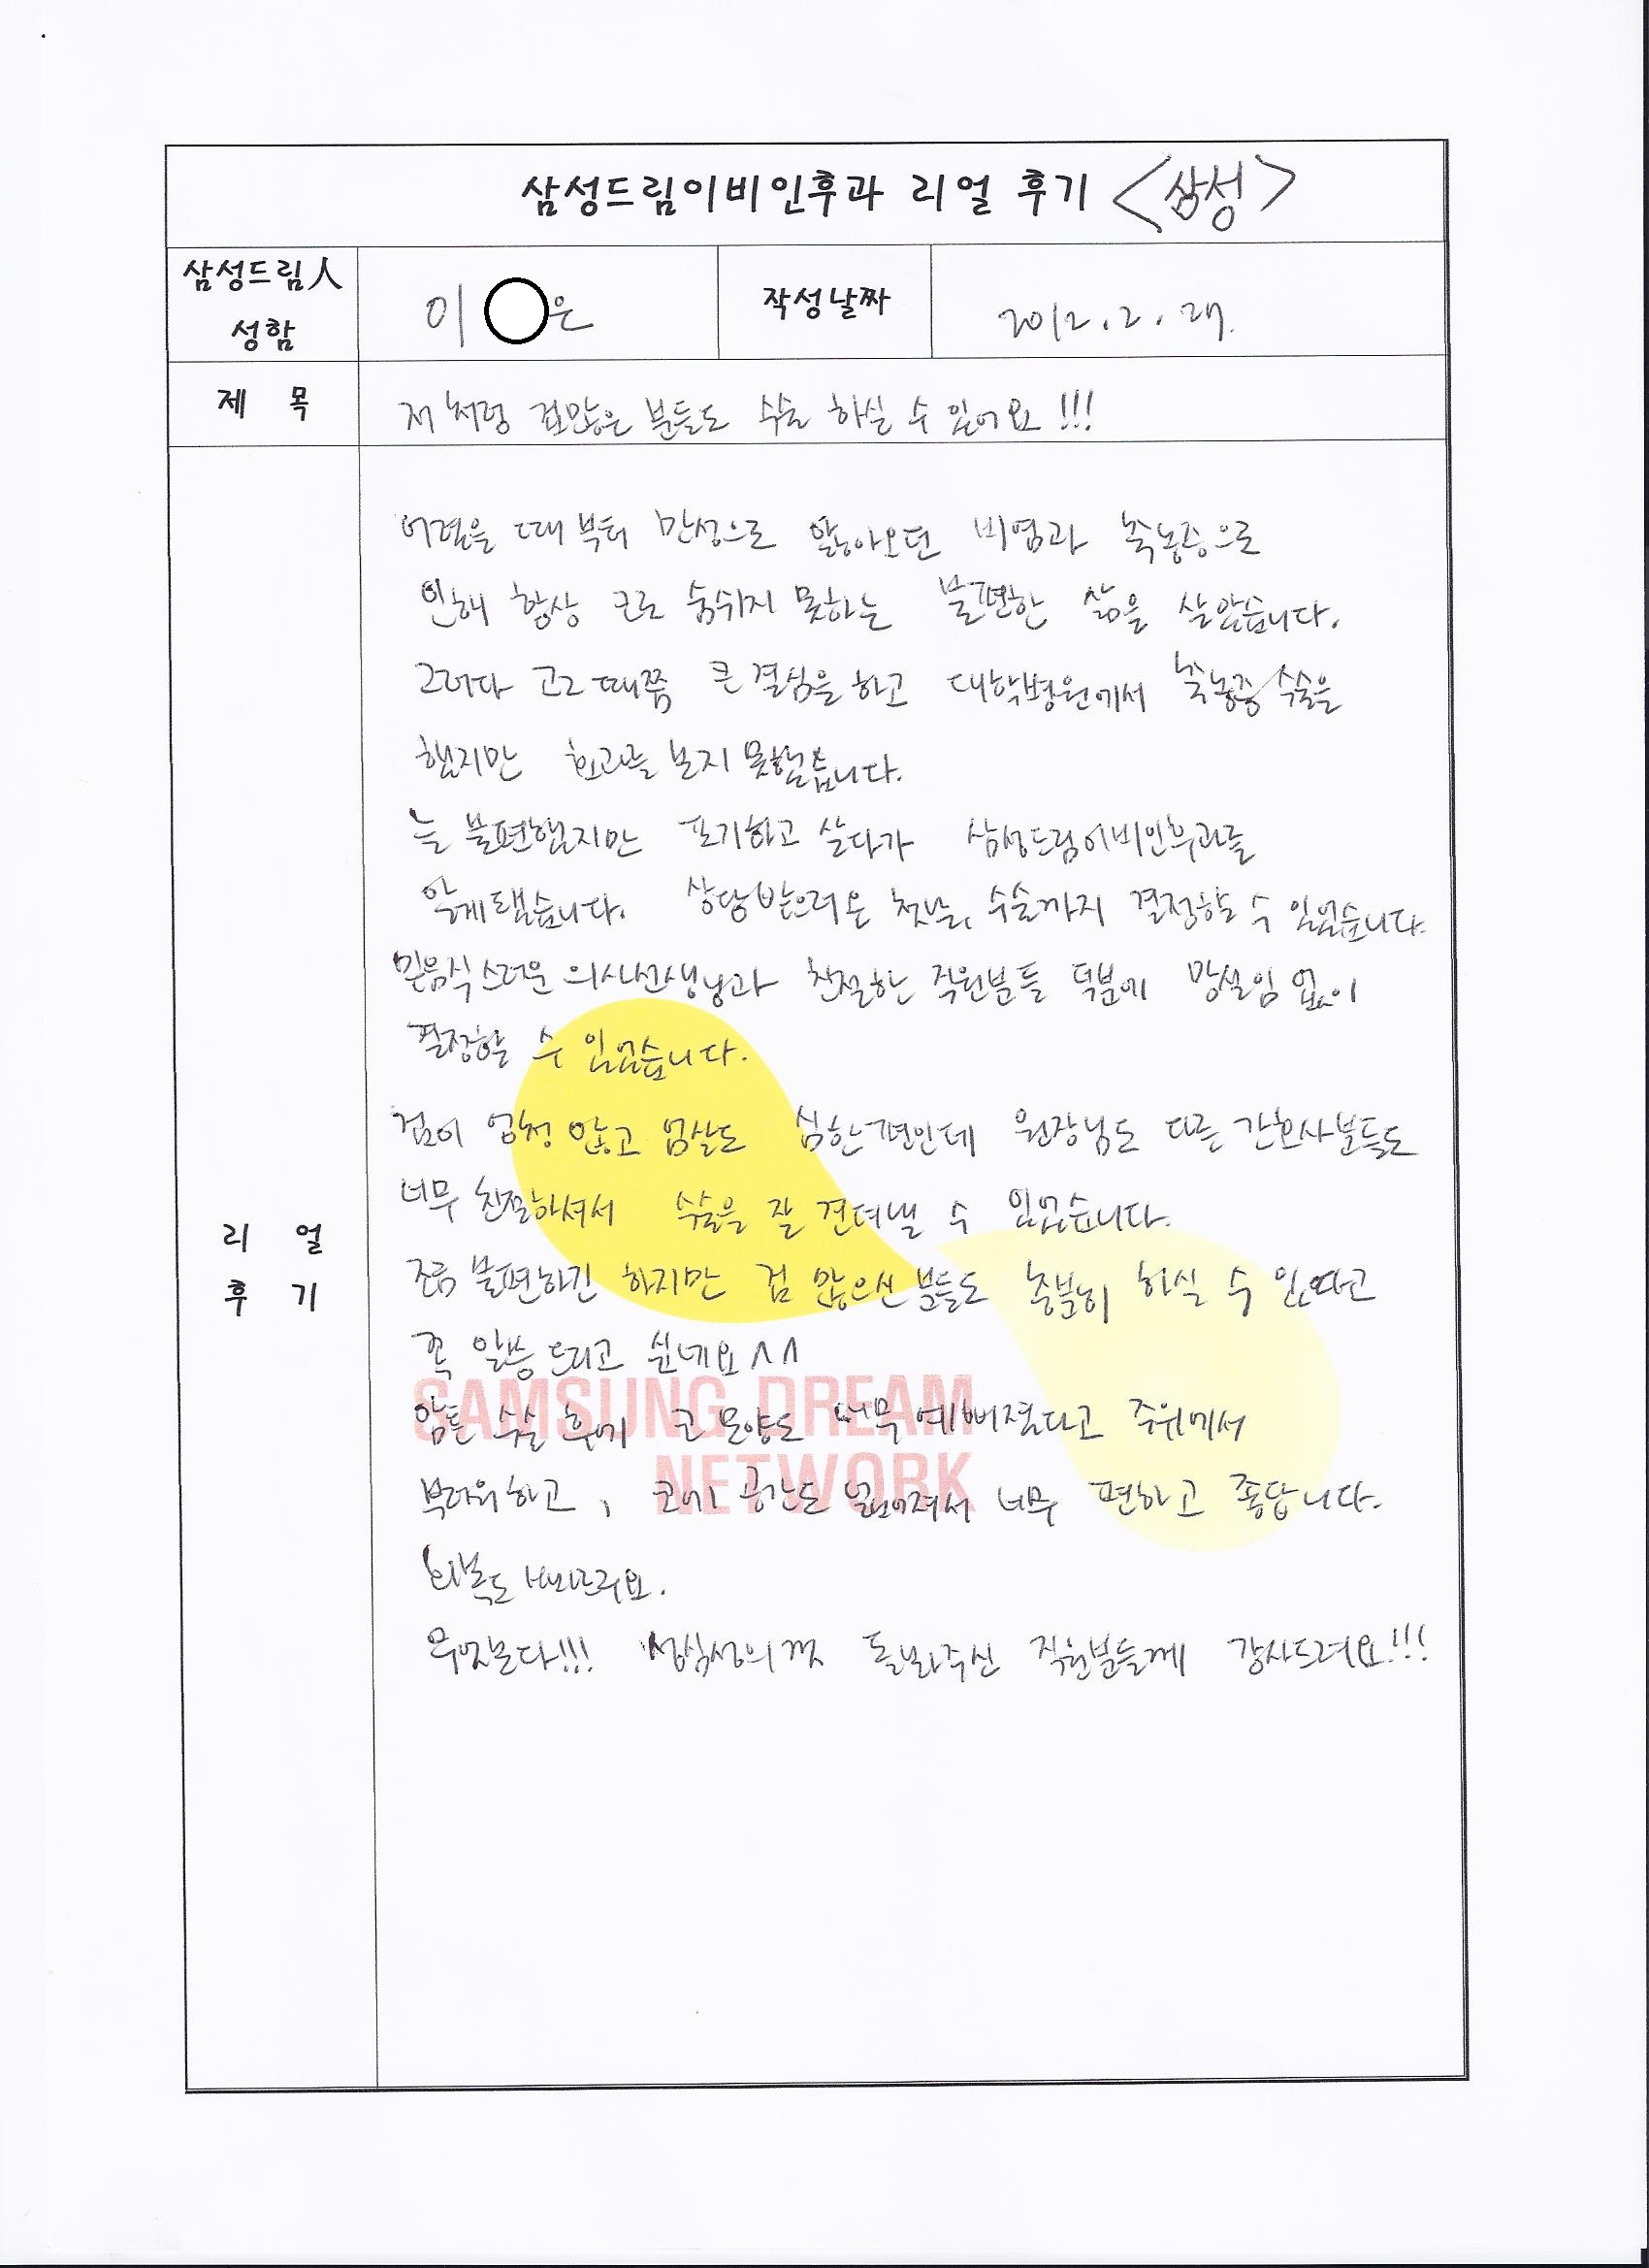 삼성드림이비인후과 리얼 후기 <삼성>
삼성드림人 성함
이 은
작성날짜
2012. 2. 27.
제 목
저처럼 겁많은 분들도 수술 하실 수 있어요!!!
리 얼 후 기
어렸을 때부터 만성으로 앓아오던 비염과 축농증으로
인해 항상 코로 숨쉬지 못하는 불편한 삶을 살았습니다.
그러다 고2때쯤 큰 결심을 하고 대학병원에서 축농증 수술을
했지만 효과를 보지 못했습니다.
늘 불편했지만 포기하고 살다가 삼성드림이비인후과를
알게됐습니다. 상담받으러온 첫날, 수술까지 결정할 수 있었습니다.
믿음직스러운 의사선생님과 친절한 직원분들 덕분에 망설임 없이
결정할 수 있었습니다.
겁이 엄청 많고 엄살도 심한편인데 원장님도 다른 간호사분들도
너무 친절하셔서 수술을 잘 견뎌낼 수 있었습니다.
조금 불편하긴 하지만 겁 많으신 분들도 충분히 하실 수 있다고
꼭 말씀드리고 싶네요^^
암튼 수술 후에 코 모양도 너무 예뻐졌다고 주위에서
부러워하고, 코에 공간도 넓어져서 너무 편하고 좋답니다.
회복도 빠르구요.
무엇보다!!! 성심성의껏 돌봐주신 직원분들께 감사드려요!!!
SAMSUNG DREAM
NETWORK